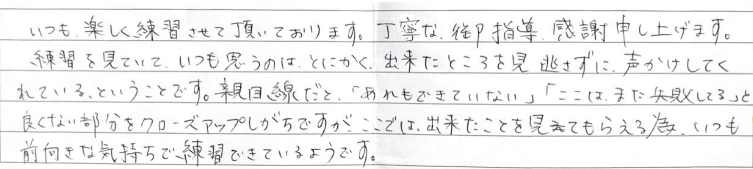 いつも、楽しく練習させて頂いております。丁寧な、御指導、感謝申し上げます。
練習を見ていて、いつも思うのは、とにかく、出来たところを見逃さずに、声かけしてく
れている、ということです。親目線だと、「あれもできていない」「ここは、また失敗してる」と
良くない部分をクローズアップしがちですが、ここでは、出来たことを見てもらえる為、いつも
前向きな気持ちで練習できているようです。